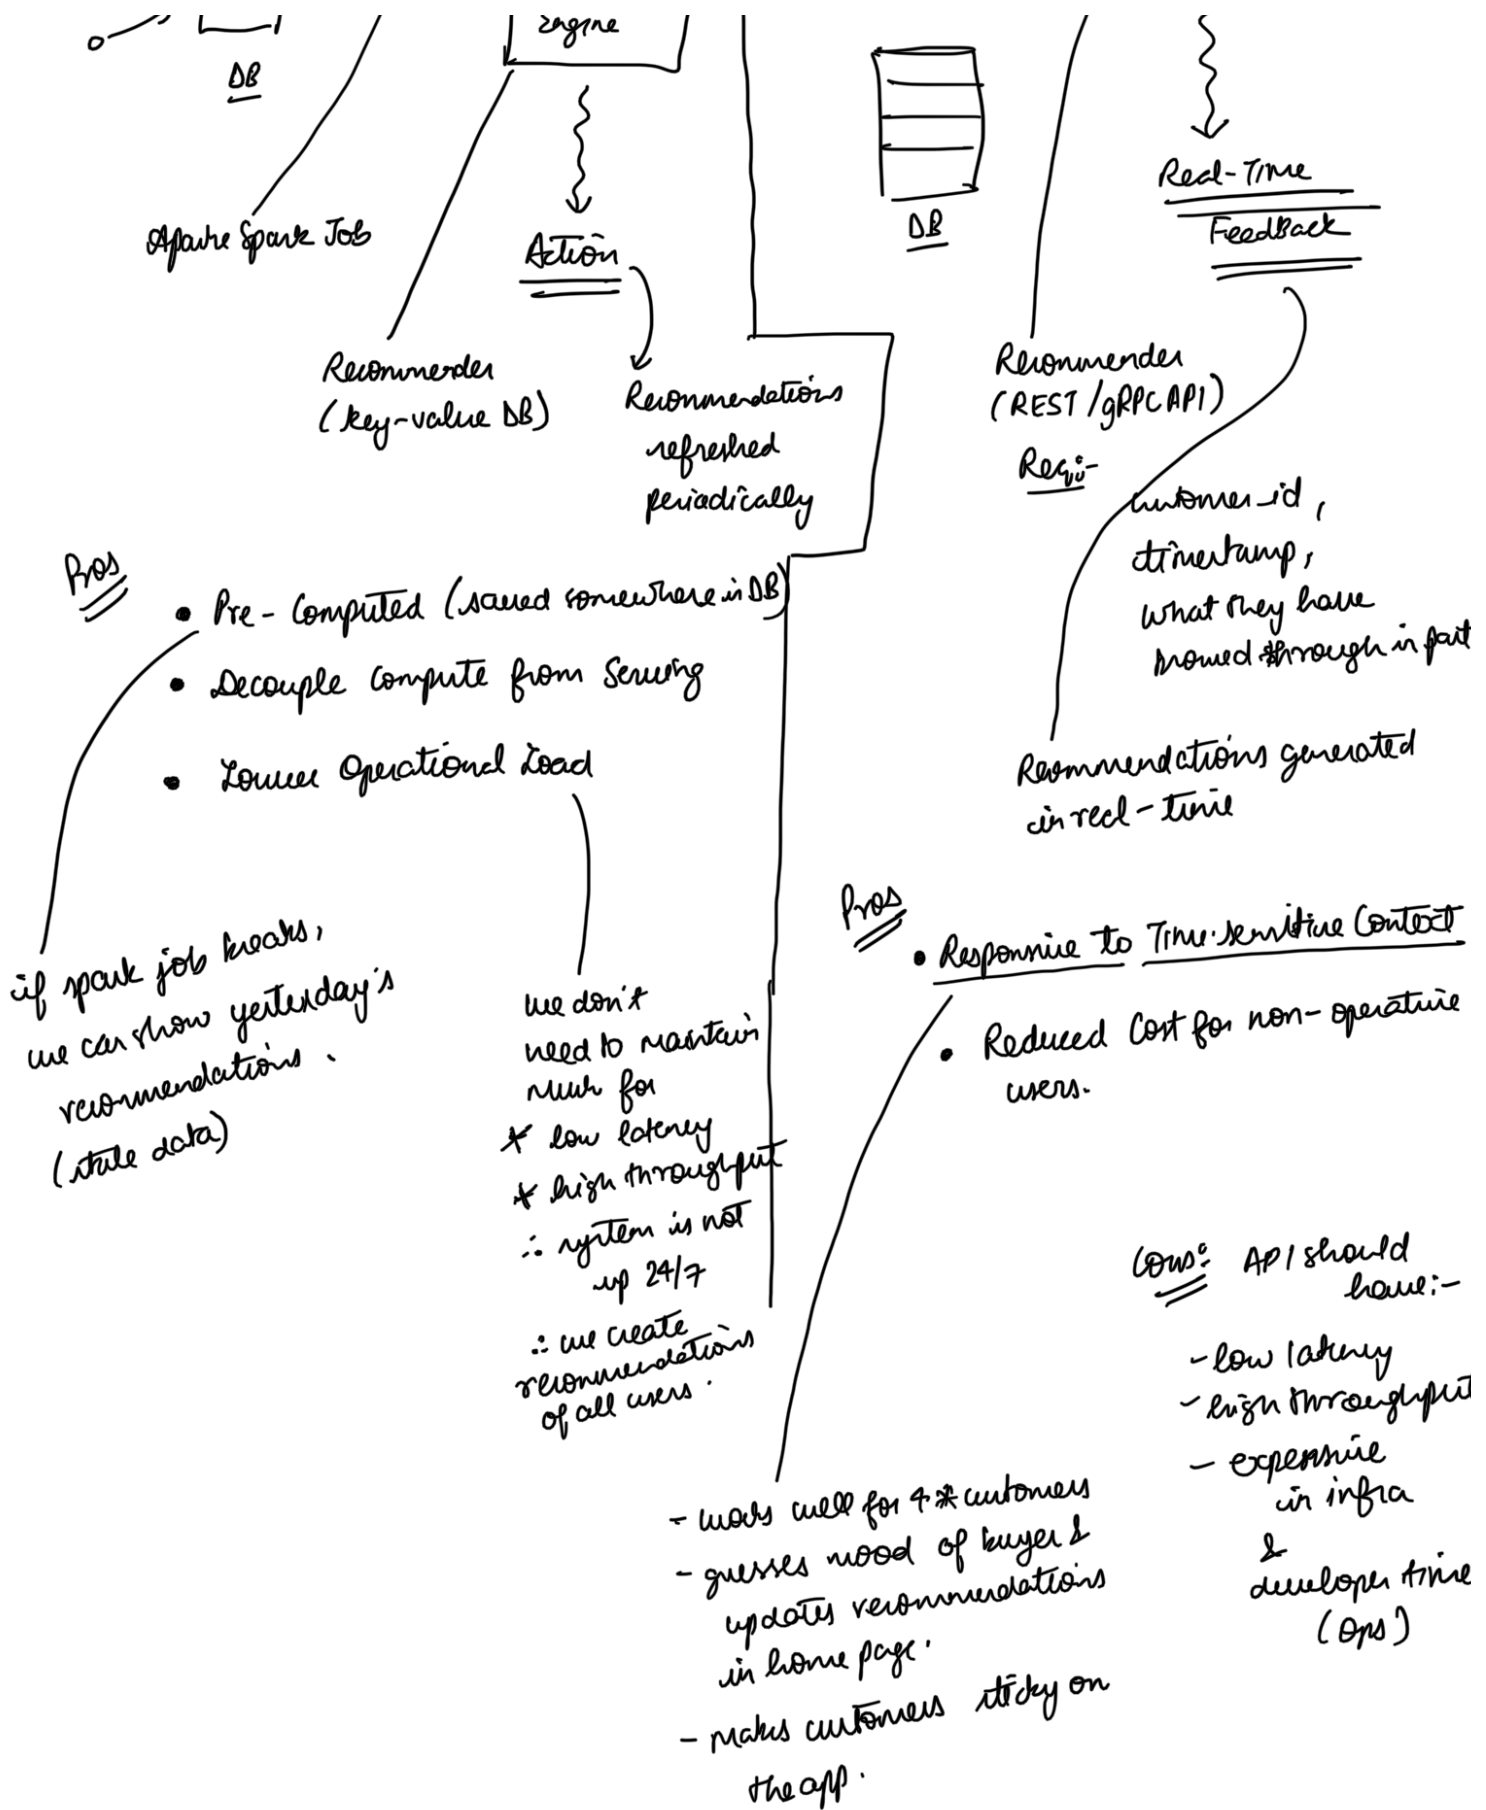 Engine
DB
Apache Spark Job
Action
Recommender
(key-value DB)
Recommendations
refreshed
periodically
Pros
• Pre-Computed (saved somewhere in DB)
• Decouple Compute from Serving
• Lower Operational Load
if spark job breaks,
we can show yesterday's
recommendations.
(stale data)
we don't
need to maintain
much for
* low latency
* high throughput
∴ system is not
up 24/7
∴ we create
recommendations
of all users.
DB
Real-Time
Feedback
Recommender
(REST/gRPC API)
Req:-
customer_id,
timestamp,
what they have
browsed through in past
Recommendations generated
in real-time
Pros
• Responsive to Time-sensitive Context
• Reduced Cost for non-operative
users.
- works well for customers
- guesses mood of buyer &
updates recommendations
in home page.
- makes customers sticky on
the app.
Cons: API should
have:-
- low latency
- high throughput
- expensive
in infra
&
developer time
(ops)